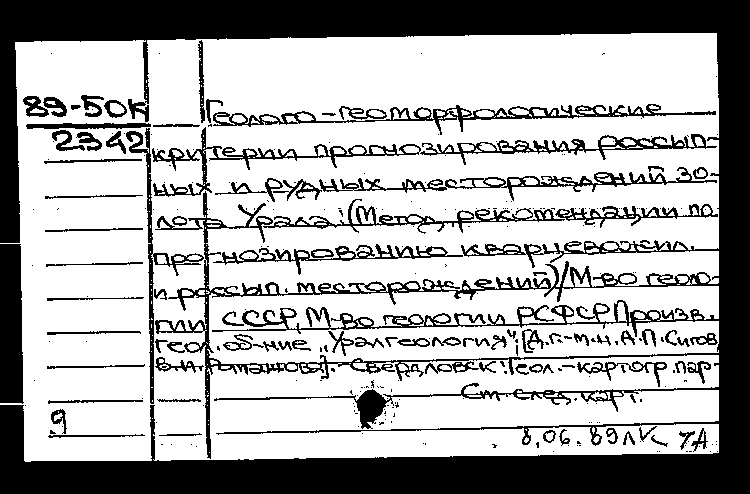 89-50к Геолого-геоморфологические
2342 критерии прогнозирования россып-
ных и рудных месторождений зо-
лота Урала:(Метод. рекомендации по
прогнозированию кварцевожил.
и россып. месторождений)/М-во геоло-
гии СССР, М-во геологии РСФСР, Произв.
геол. об-ние "Уралгеология"; [Д.г.-м.н. А.П. Сигов,
В.И. Ромашова].-Свердловск: Геол.-картогр. пар-
См. след. карт.
9
8.06.89 ЛК ТА